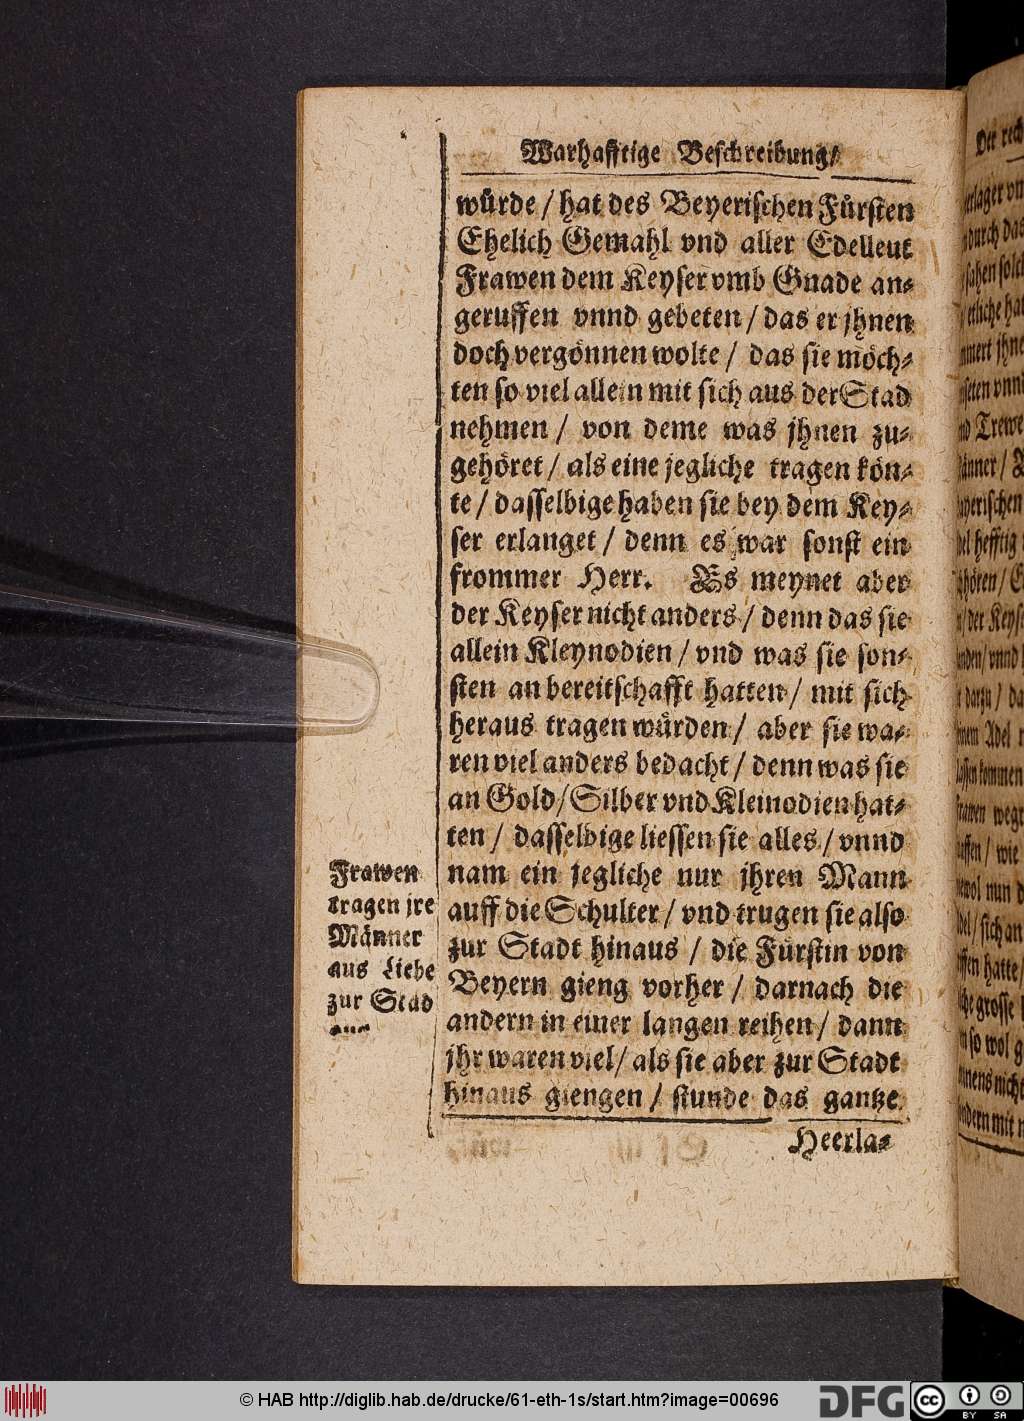 Warhafftige Beschreibung/
würde / hat des Beyerischen Fürsten
Ehelich Gemahl vnd aller Edelleut
Frawen dem Keyser vmb Gnade an-
geruffen vnnd gebeten / das er jhnen
doch vergönnen wolte / das sie möch-
ten so viel allein mit sich aus der Stad
nehmen / von deme was jhnen zu-
gehöret / als eine jegliche tragen kön-
te / dasselbige haben sie bey dem Key-
ser erlanget / denn es war sonst ein
frommer Herr. Es meynet aber
der Keyser nicht anders / denn das sie
allein Kleynodien / vnd was sie son-
sten an bereitschafft hatten / mit sich
heraus tragen würden / aber sie wa-
ren viel anders bedacht / denn was sie
an Gold / Silber vnd Kleinodien hat-
ten / dasselbige liessen sie alles / vnnd
nam ein jegliche nur jhren Mann
auff die Schulter / vnd trugen sie also
zur Stadt hinaus / die Fürstin von
Beyern gieng vorher / darnach die
andern in einer langen reihen / dann
jhr waren viel / als sie aber zur Stadt
hinaus giengen / stunde das gantze
Heerla-
Frawen
tragen jre
Männer
aus Liebe
zur Stad
aus
Der rech
durch das
sahen solch
etliche hat
nd Trewe
änner /
yerischen
hefftig
hören /
/ der Keyse
nden / vnnd
darzu / da
nem Adel
lassen kommen
frawen weg
uffen / wie
wol nun d
/ sich an
ffen hatte /
che grosse
so wol g
nens nicht
ndern mit
© HAB http://diglib.hab.de/drucke/61-eth-1s/start.htm?image=00696
DFG
cc
BY SA